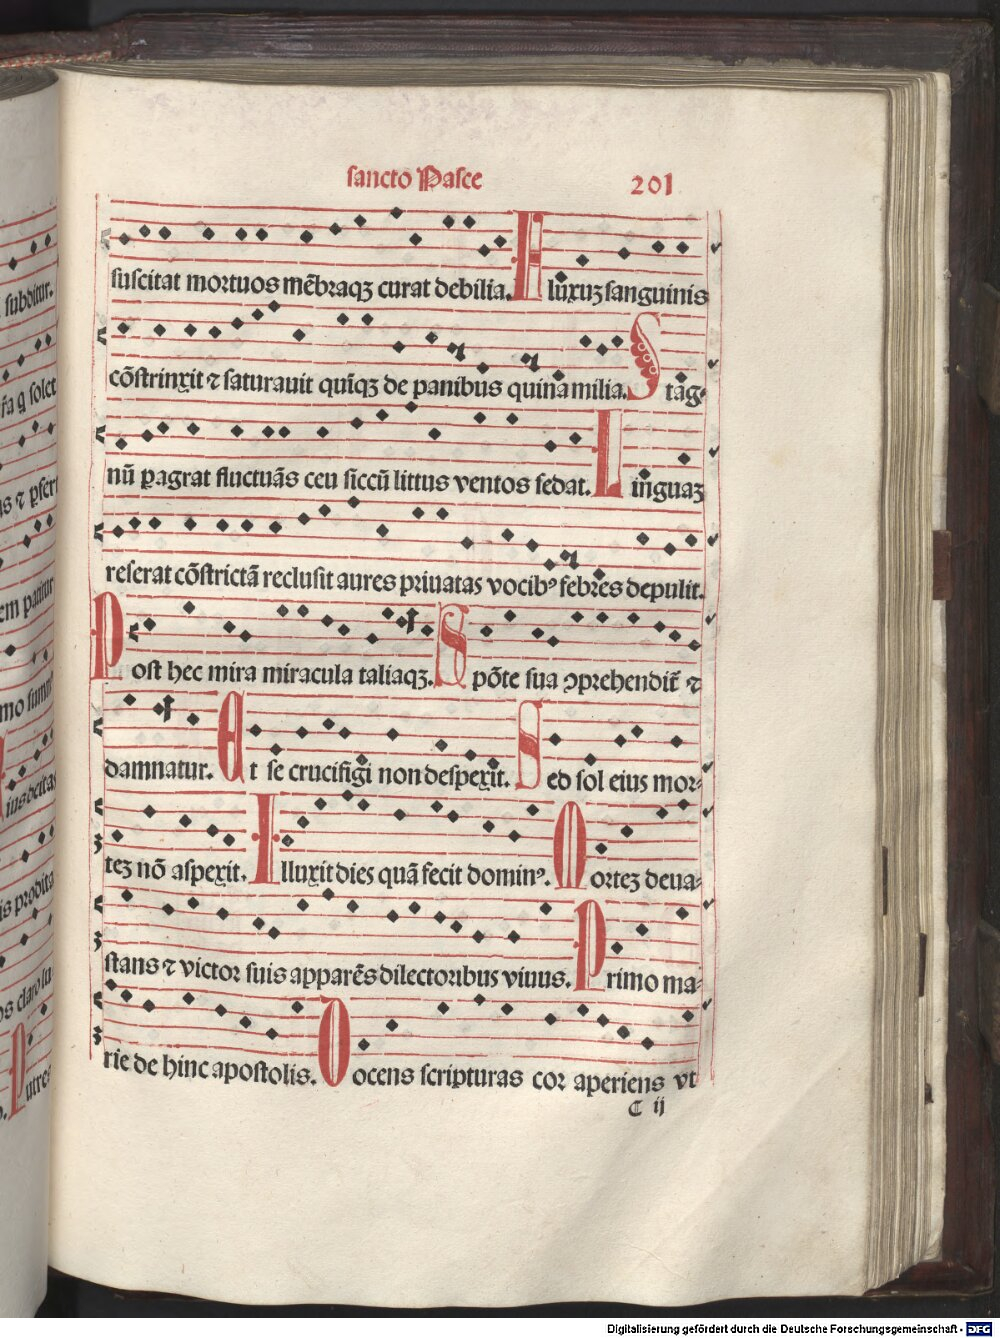 sancto Pasce 201
suscitat mortuos mẽbraqꝫ curat debilia. Fluxuꝫ sanguinis
cõstrinxit ⁊ saturauit quĩqꝫ de panibus quina milia. Stag-
nũ ꝑagrat fluctuãs ceu siccũ littus ventos sedat. Linguaꝫ
reserat cõstrictã reclusit aures priuatas vocibꝰ febres depulit.
Post hec mira miracula taliaqꝫ. Spõte sua ꝯprehendit̃ ⁊
damnatur. Et se crucifigi non despexit. Sed sol eius mor-
teꝫ nõ aspexit. Illuxit dies quã fecit dominꝰ. Morteꝫ deua-
stans ⁊ victor suis apparẽs dilectoribus viuus. Primo ma-
rie de hinc apostolis. Docens scripturas cor aperiens vt
C ij
subditur.
solet
em patitur
mo summ
ius deitas
is prodita
os claro lu
Putres
Digitalisierung gefördert durch die Deutsche Forschungsgemeinschaft - DFG